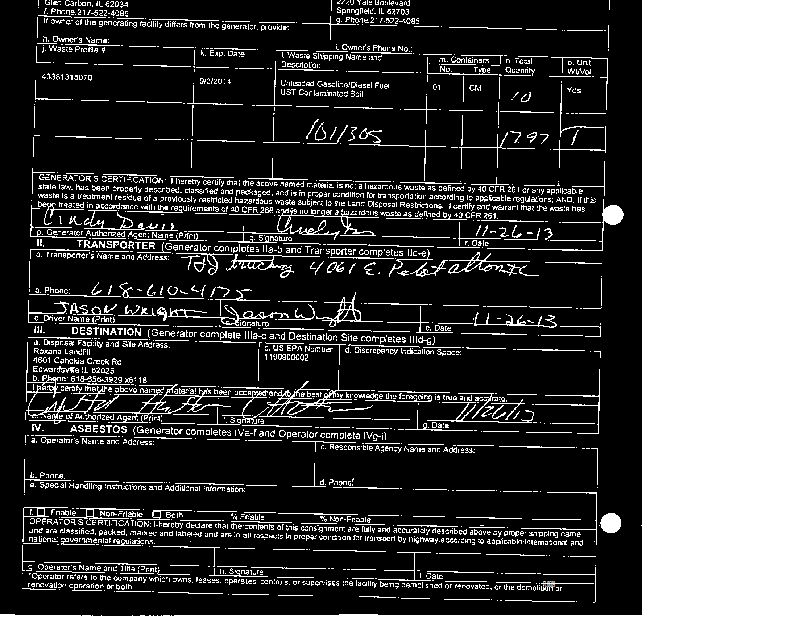 Glen Carbon, IL 62034
2720 Yale Boulevard
Springfield, IL 62703
f. Phone: 217-522-4085
g. Phone: 217-522-4085
If owner of the generating facility differs from the generator, provide:
h. Owner's Name:
i. Owner's Phone No.:
j. Waste Profile #
k. Exp. Date
l. Waste Shipping Name and Description
m. Containers
No. Type
n. Total Quantity
o. Unit Wt/Vol
5/3/2014
Unleaded Gasoline/Diesel Fuel
UST Contaminated Soil
01
CM
10
Yes
1011305
17.97
T
GENERATOR'S CERTIFICATION: I hereby certify that the above named material is not a hazardous waste as defined by 40 CFR 261 or any applicable
state law, has been properly described, classified and packaged, and is in proper condition for transportation according to applicable regulations; AND, if this
waste is a treatment residue of a previously restricted hazardous waste subject to the Land Disposal Restrictions. I certify and warrant that the waste has
been treated in accordance with the requirements of 40 CFR 268 and is no longer a hazardous waste as defined by 40 CFR 261.
Cindy Davis
11-26-13
p. Generator Authorized Agent Name (Print)
q. Signature
r. Date
II. TRANSPORTER (Generator completes IIa-b and Transporter completes IIc-e)
a. Transporter's Name and Address:
trucking 4061 E.
a. Phone: 618-610-4175
JASON WRIGHT
11-26-13
c. Driver Name (Print)
Signature
e. Date
III. DESTINATION (Generator complete IIIa-c and Destination Site completes IIId-g)
a. Disposal Facility and Site Address:
c. US EPA Number
d. Discrepancy Indication Space:
Roxana Landfill
1190900002
4601 Cahokia Creek Rd
Edwardsville IL 62025
b. Phone: 618-656-3929 x6118
I hereby certify that the above named material has been accepted and to the best of my knowledge the foregoing is true and accurate.
11/26/13
e. Name of Authorized Agent (Print)
f. Signature
g. Date
IV. ASBESTOS (Generator completes IVa-f and Operator complete IVg-i)
a. Operator's Name and Address:
c. Responsible Agency Name and Address:
b. Phone:
d. Phone:
e. Special Handling Instructions and Additional Information:
f. Friable Non-Friable Both % Friable % Non-Friable
OPERATOR'S CERTIFICATION: I hereby declare that the contents of this consignment are fully and accurately described above by proper shipping name
and are classified, packed, marked and labeled and are in all respects in proper condition for transport by highway according to applicable international and
national governmental regulations.
g. Operator's Name and Title (Print)
h. Signature
i. Date
*Operator refers to the company which owns, leases, operates, controls, or supervises the facility being demolished or renovated, or the demolition or
renovation operation or both